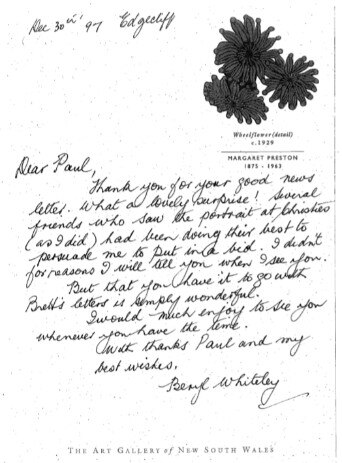 Dec 30th 97 Edgecliff
Wheelflower (detail)
c.1929
MARGARET PRESTON
1875 - 1963
Dear Paul,
Thank you for your good news
letter. What a lovely surprise! Several
friends who saw the portrait at Christies
(as I did) had been doing their best to
persuade me to put in a bid. I didn't
for reasons I will tell you when I see you.
But that you have it to go with
Brett's letters is simply wonderful.
I would much enjoy to see you
whenever you have the time.
With thanks Paul and my
best wishes.
Beryl Whiteley
THE ART GALLERY of NEW SOUTH WALES